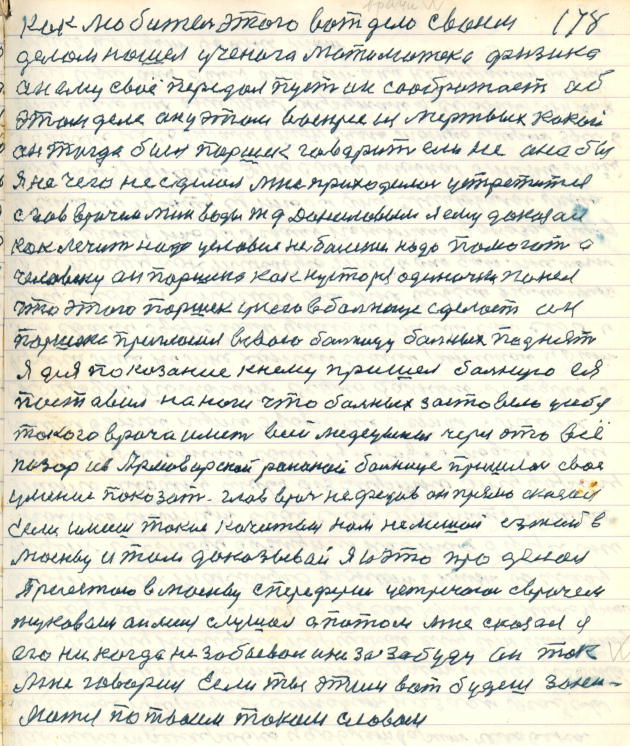 врачи
как любител этого вот дело своим 178
делом нашел ученога матиматека физика
ан ему своё передал пуст ан сооброжает аб
этом деле ану этом вопрсе из мертвых какой
ан тигда был паршек говарит если не ана бы
Я не чего не сделал мне приходилос устретится
с глав врачем мин воды ж д Даниловым я ему доказал
как лечит надо условия не балшии надо помогат а
человеку ан паршека как нуторя одиночки понел
что этого паршек у него в балнице сделает ан
паршека пригласил всвою балницу балных поднят
Я для показание кнему пришел балную ея
поставил на ноги что балных заставело уебя
такого врача имет всей медецыны через ето всё
позор ив Прмоварской районай балнице пришлос свае
умение показат. глав врач нефедав ан прямо сказал
Если имееш такие качитвы нам не мешай езжай в
москву и там доказывай Я и это про делал
Преостою в москву сперефери устречаюс сврачем
жуковам ан миня слушал а патом мне сказал я
его ни когда не забываю и не за забуду ан так
мне говорил Если ты этим вот будеш зани-
матся по твоим таким словам